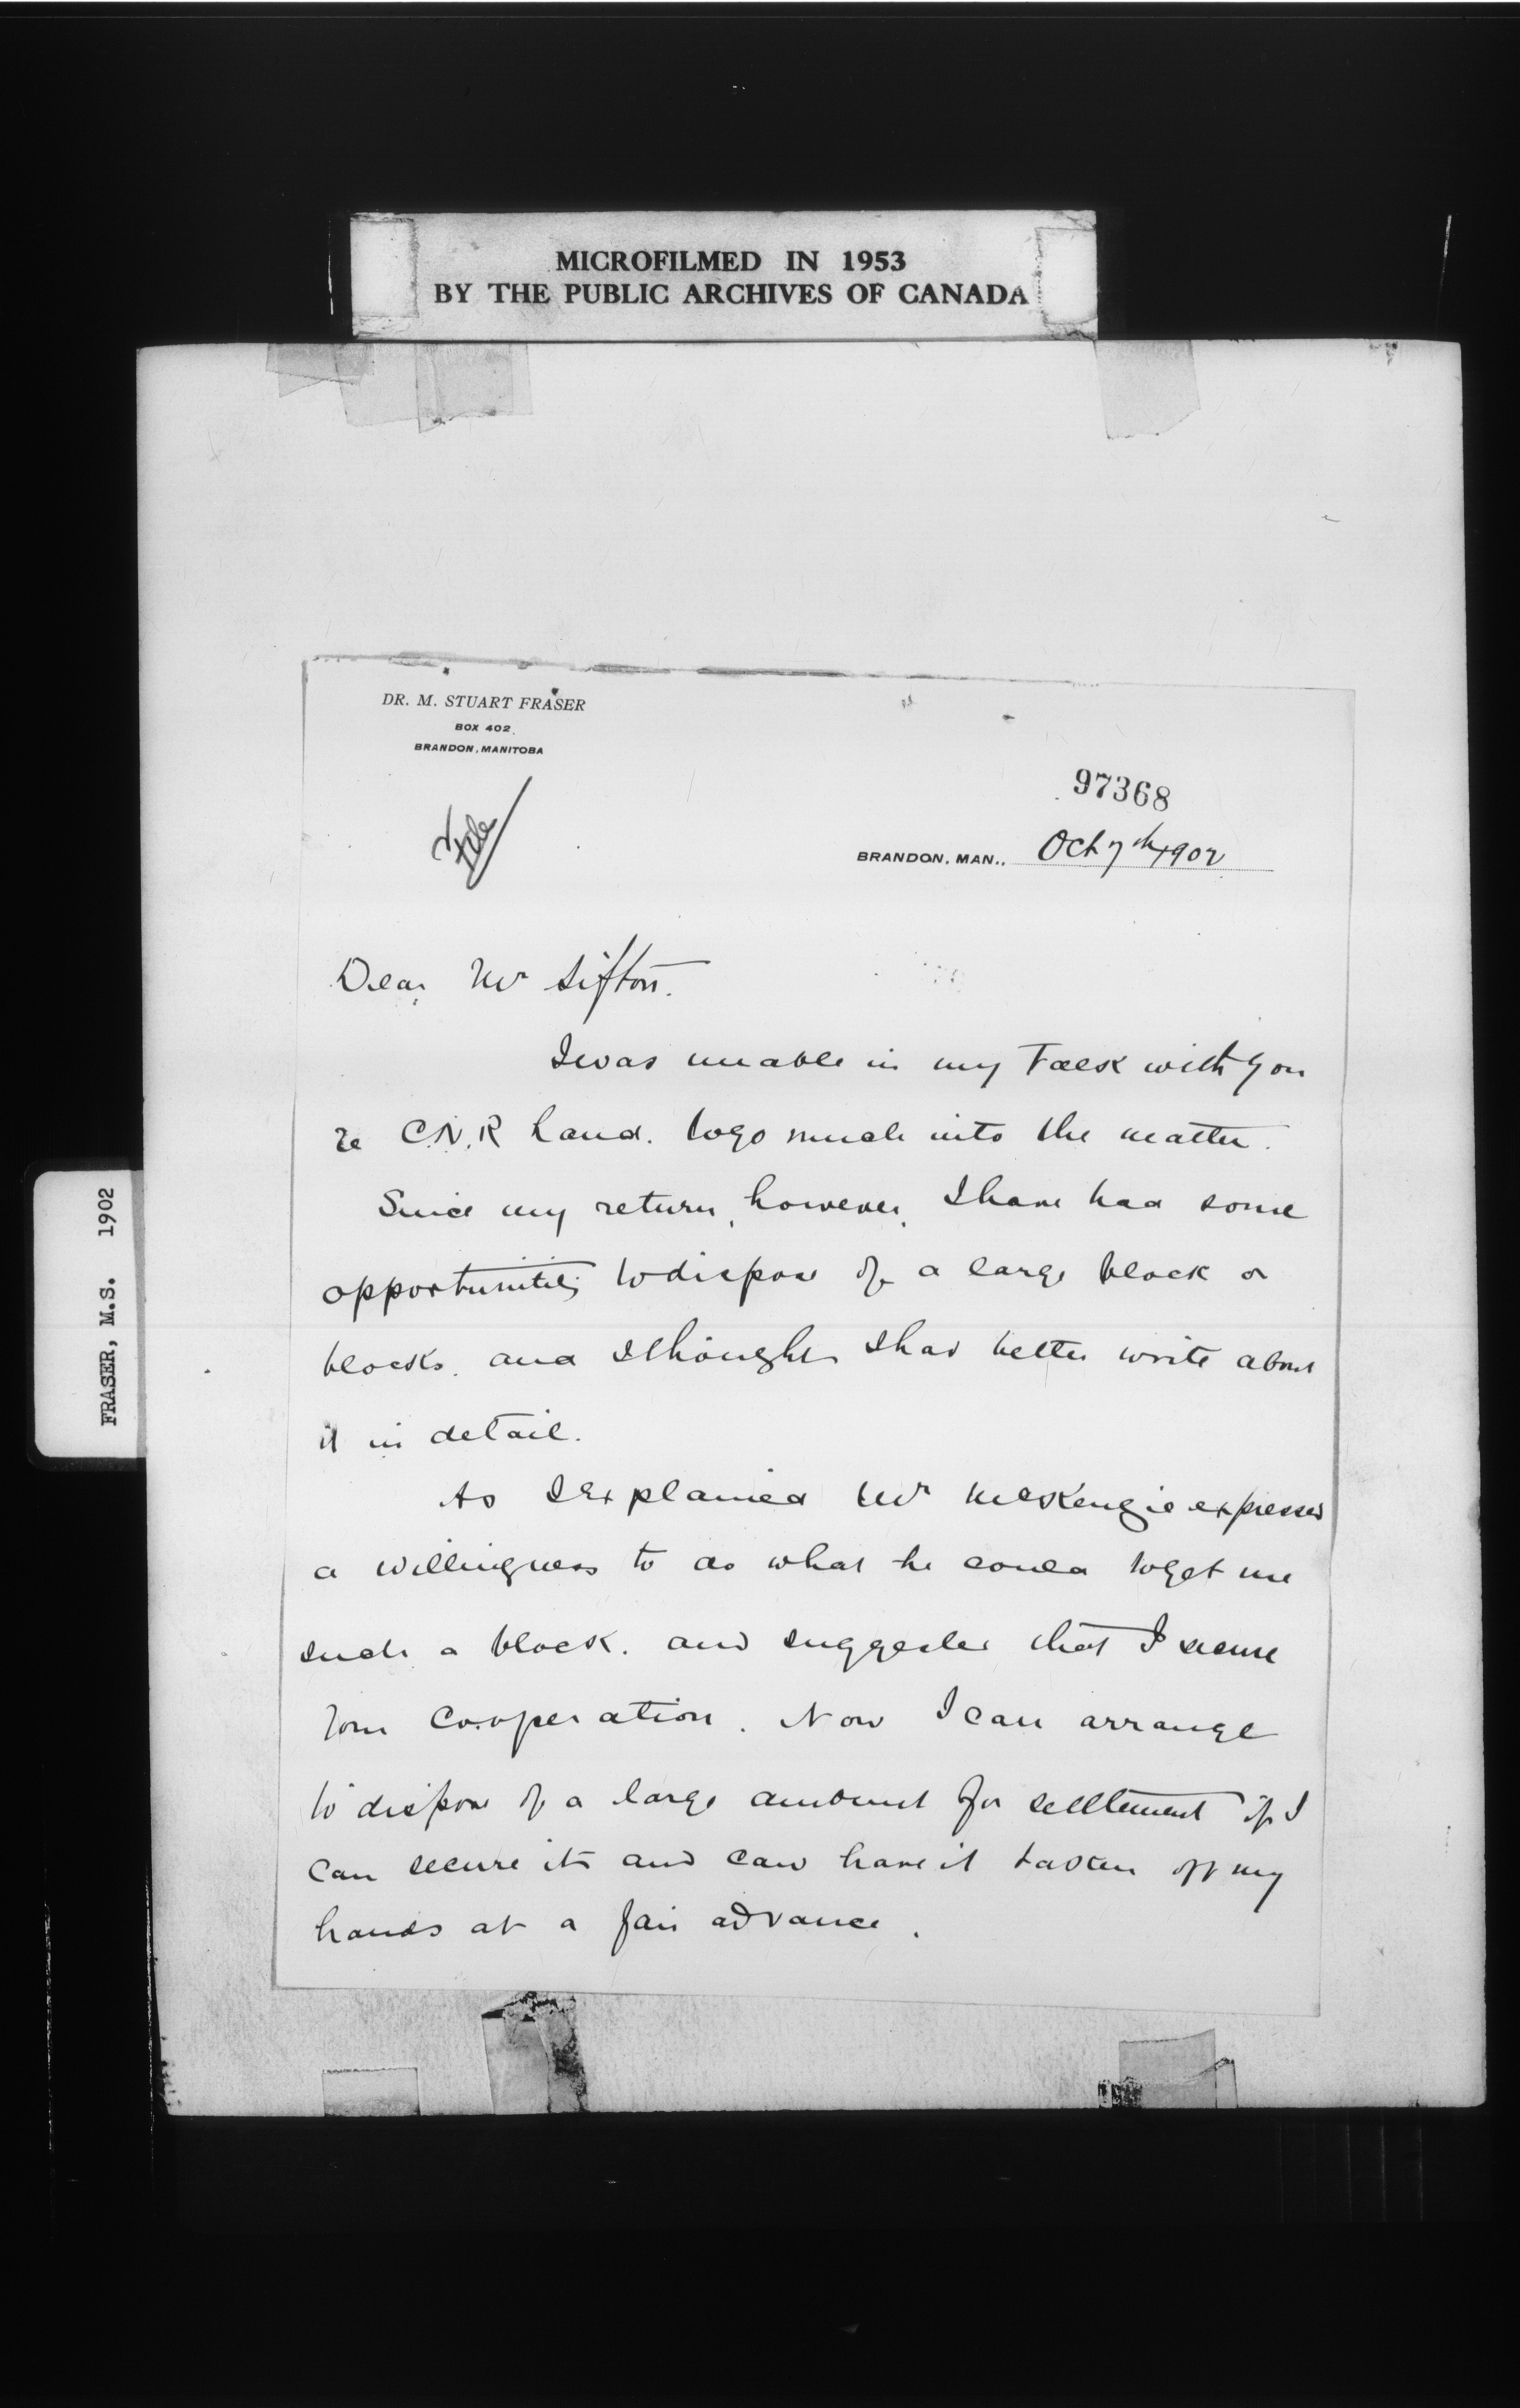 MICROFILMED IN 1953
BY THE PUBLIC ARCHIVES OF CANADA
FRASER, M.S. 1902
DR. M. STUART FRASER
BOX 402.
BRANDON, MANITOBA
File
97368
BRANDON, MAN., Oct 7th 1902
Dear Mr Sifton.
I was unable in my Talk with you
re C.N.R Land. to go much into the matter.
Since my return, however, I have had some
opportunities to dispose of a large block or
blocks. and I thought I had better write about
it in detail.
As I explained Mr McKenzie expressed
a willingness to do what he could to get me
such a block. and suggested that I secure
Your Cooperation. Now I can arrange
to dispose of a large amount for settlement if I
can secure it and can have it taken off my
hands at a fair advance.